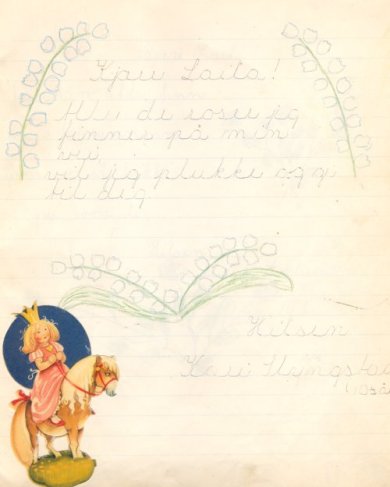 Kjære Laila!
Alle de roser jeg
finner på min
vei,
vil jeg plukke og gi
til deg
Hilsen
Kari